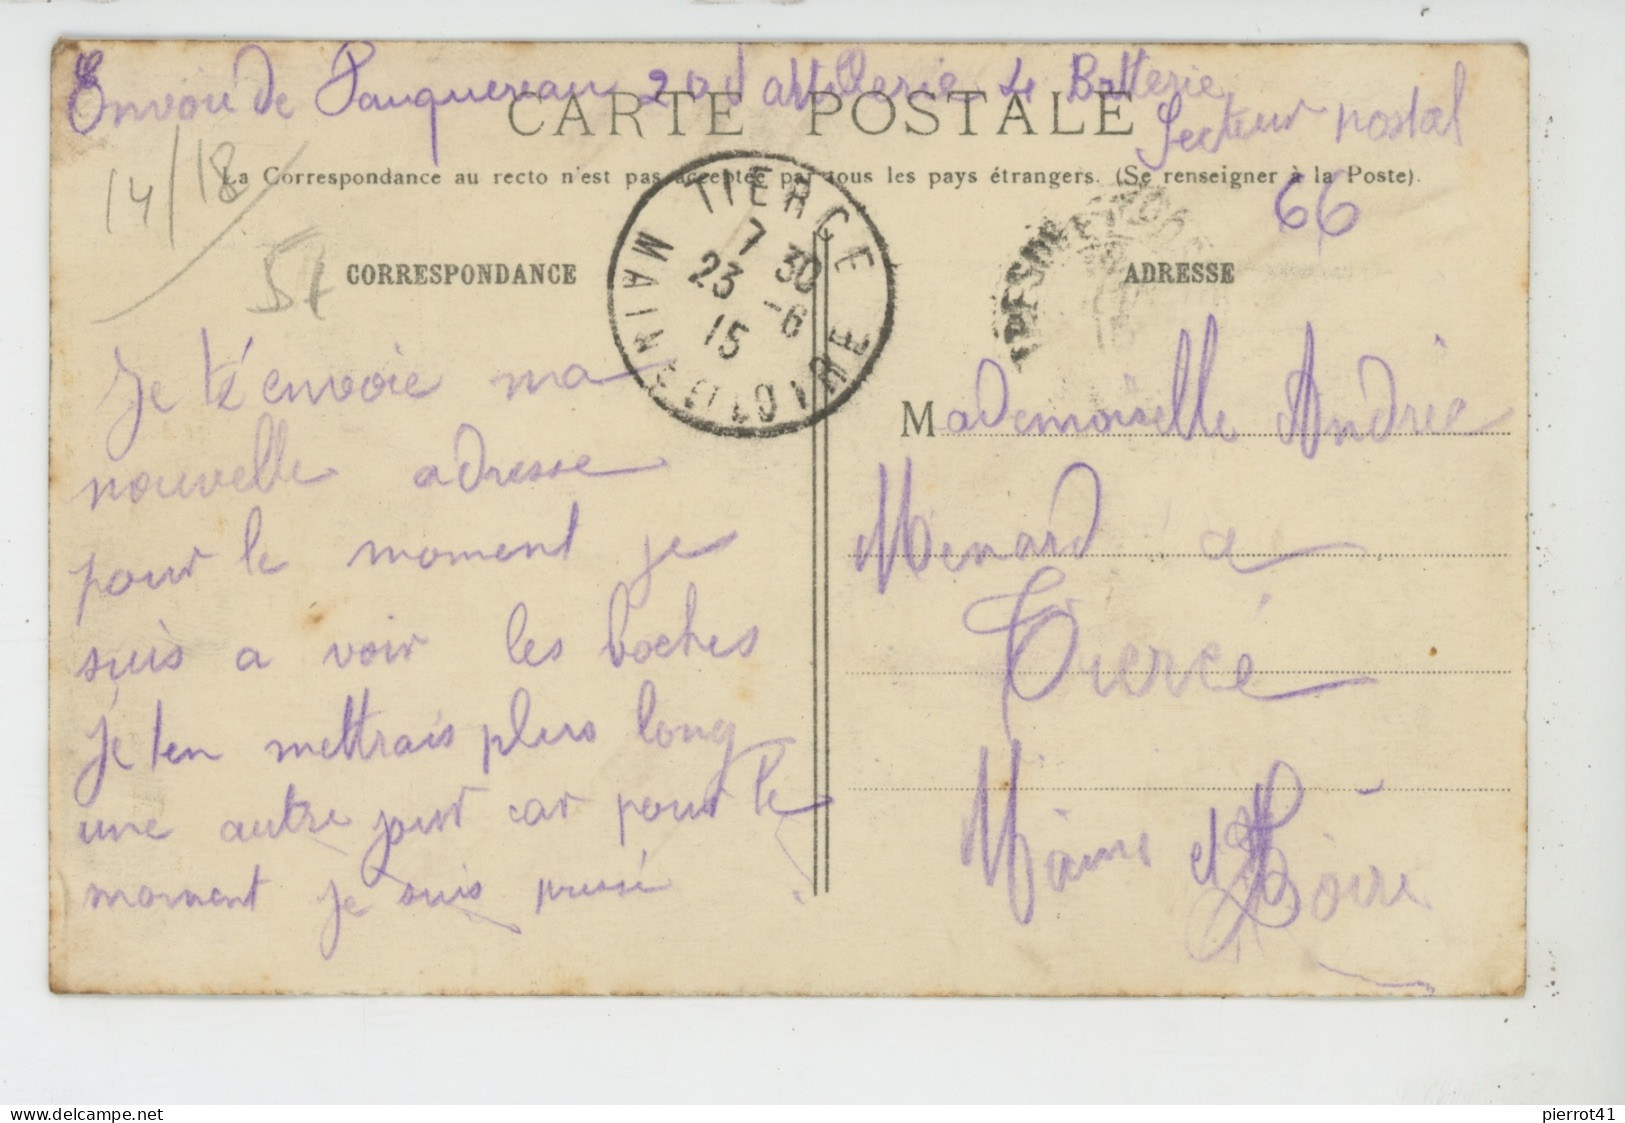 Envoie de Pauquereau 20 d artillerie 4 Batterie
Secteur postal
66
CARTE POSTALE
La Correspondance au recto n'est pas acceptée par tous les pays étrangers. (Se renseigner à la Poste).
14/18
CORRESPONDANCE
TIERCE
7 30
23 -6
15
MAINE-ET-LOIRE
ADRESSE
Je t'envoie ma
nouvelle adresse
pour le moment je
suis a voir les boches
je ten mettrais plus long
une autre jour car pour le
moment je suis pressé
Mademoiselle Andrée
Menard a
Tiercé
Maine et Loire
pierrot41